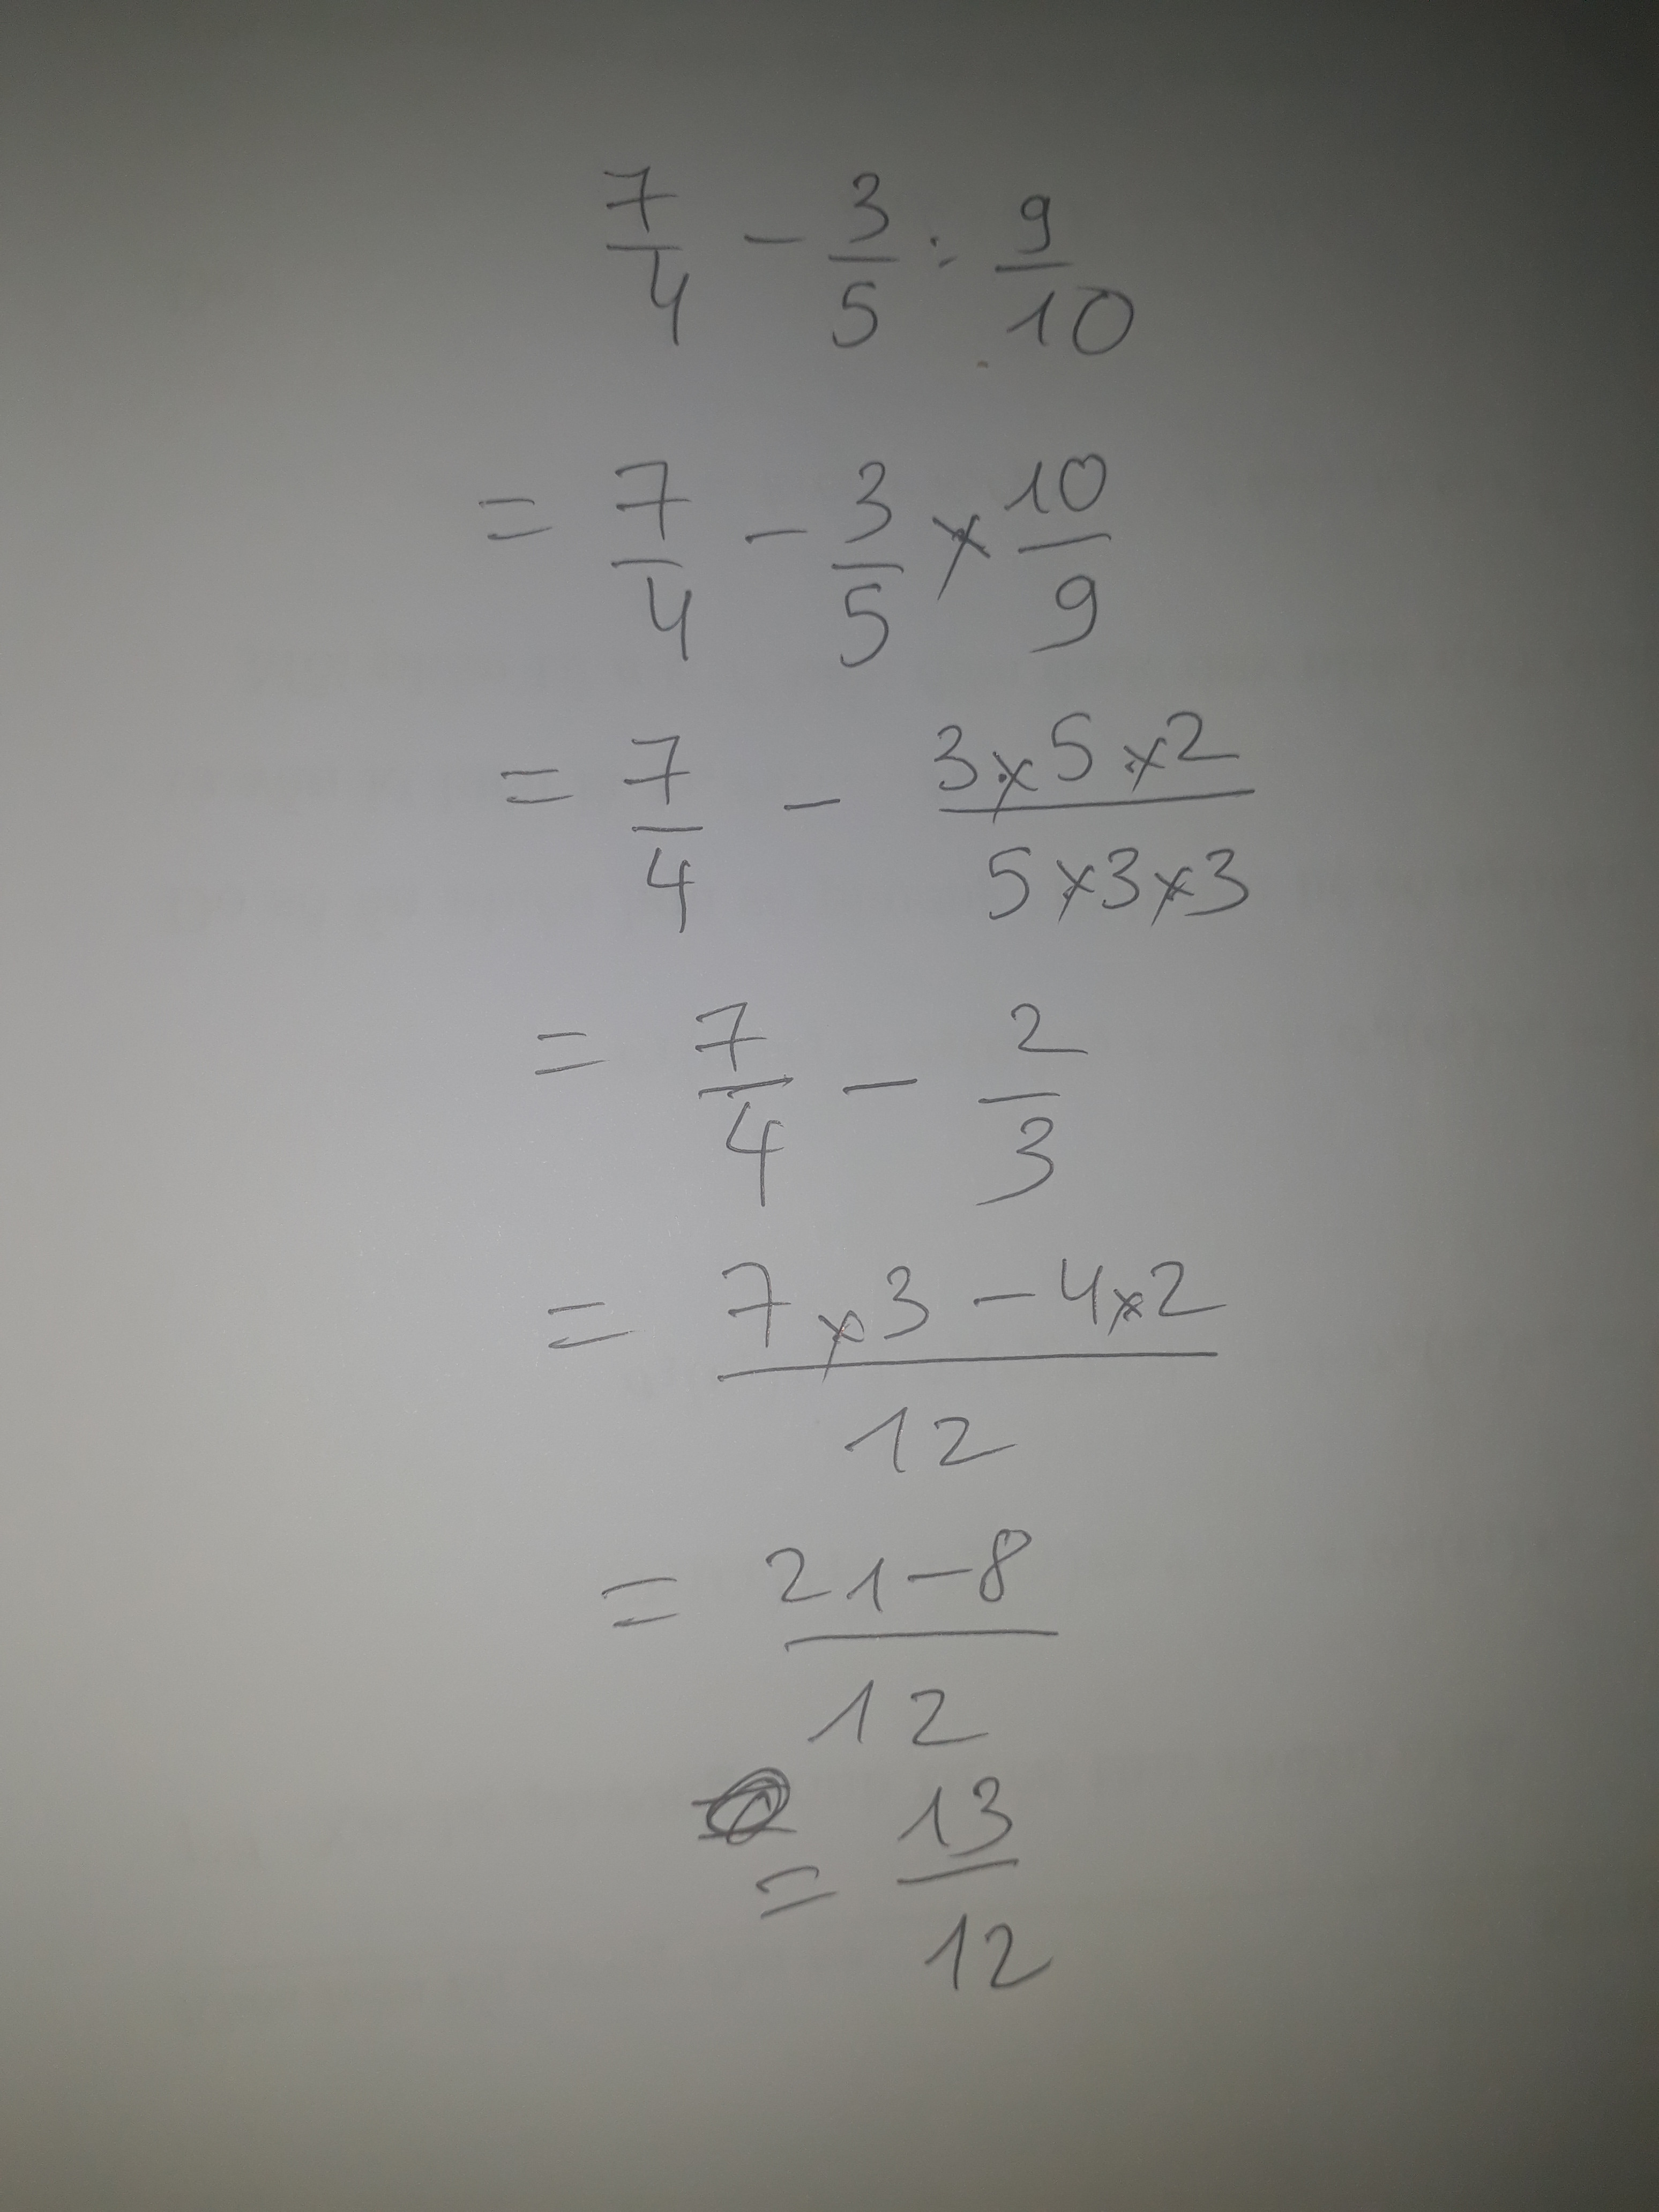 7/4 - 3/5 : 9/10
= 7/4 - 3/5 × 10/9
= 7/4 - (3×5×2)/(5×3×3)
= 7/4 - 2/3
= (7×3-4×2)/12
= (21-8)/12
= 13/12